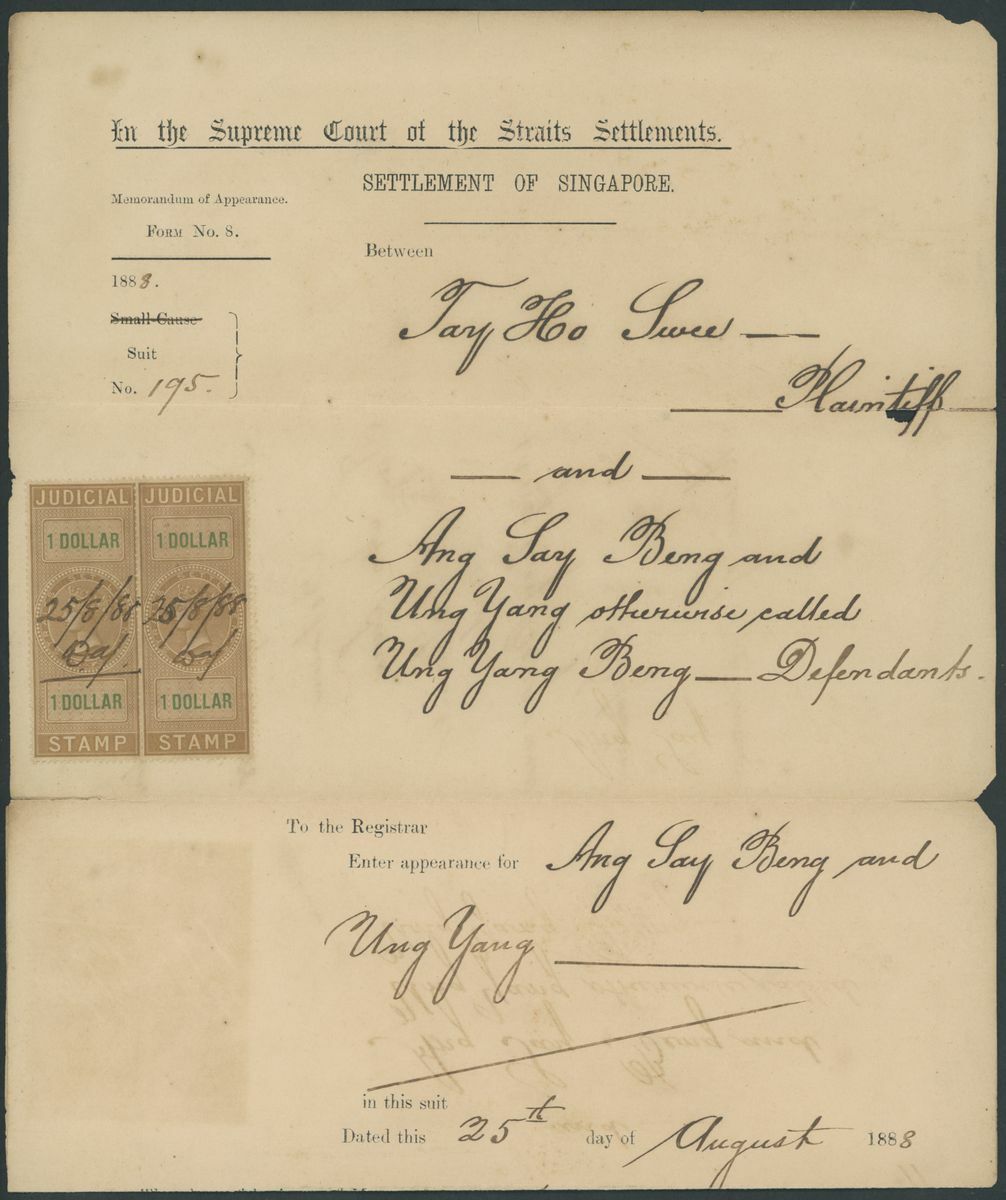 In the Supreme Court of the Straits Settlements.
SETTLEMENT OF SINGAPORE.
Memorandum of Appearance.
FORM No. 8.
1888.
Small Cause
Suit
No. 195.
Between
Tay Ho Swee
Plaintiff
and
Ang Say Beng and
Ung Yang otherwise called
Ung Yang Beng Defendants.
JUDICIAL JUDICIAL
1 DOLLAR 1 DOLLAR
25/8/88 25/8/88
1 DOLLAR 1 DOLLAR
STAMP STAMP
To the Registrar
Enter appearance for Ang Say Beng and
Ung Yang
in this suit
Dated this 25th day of August 1888